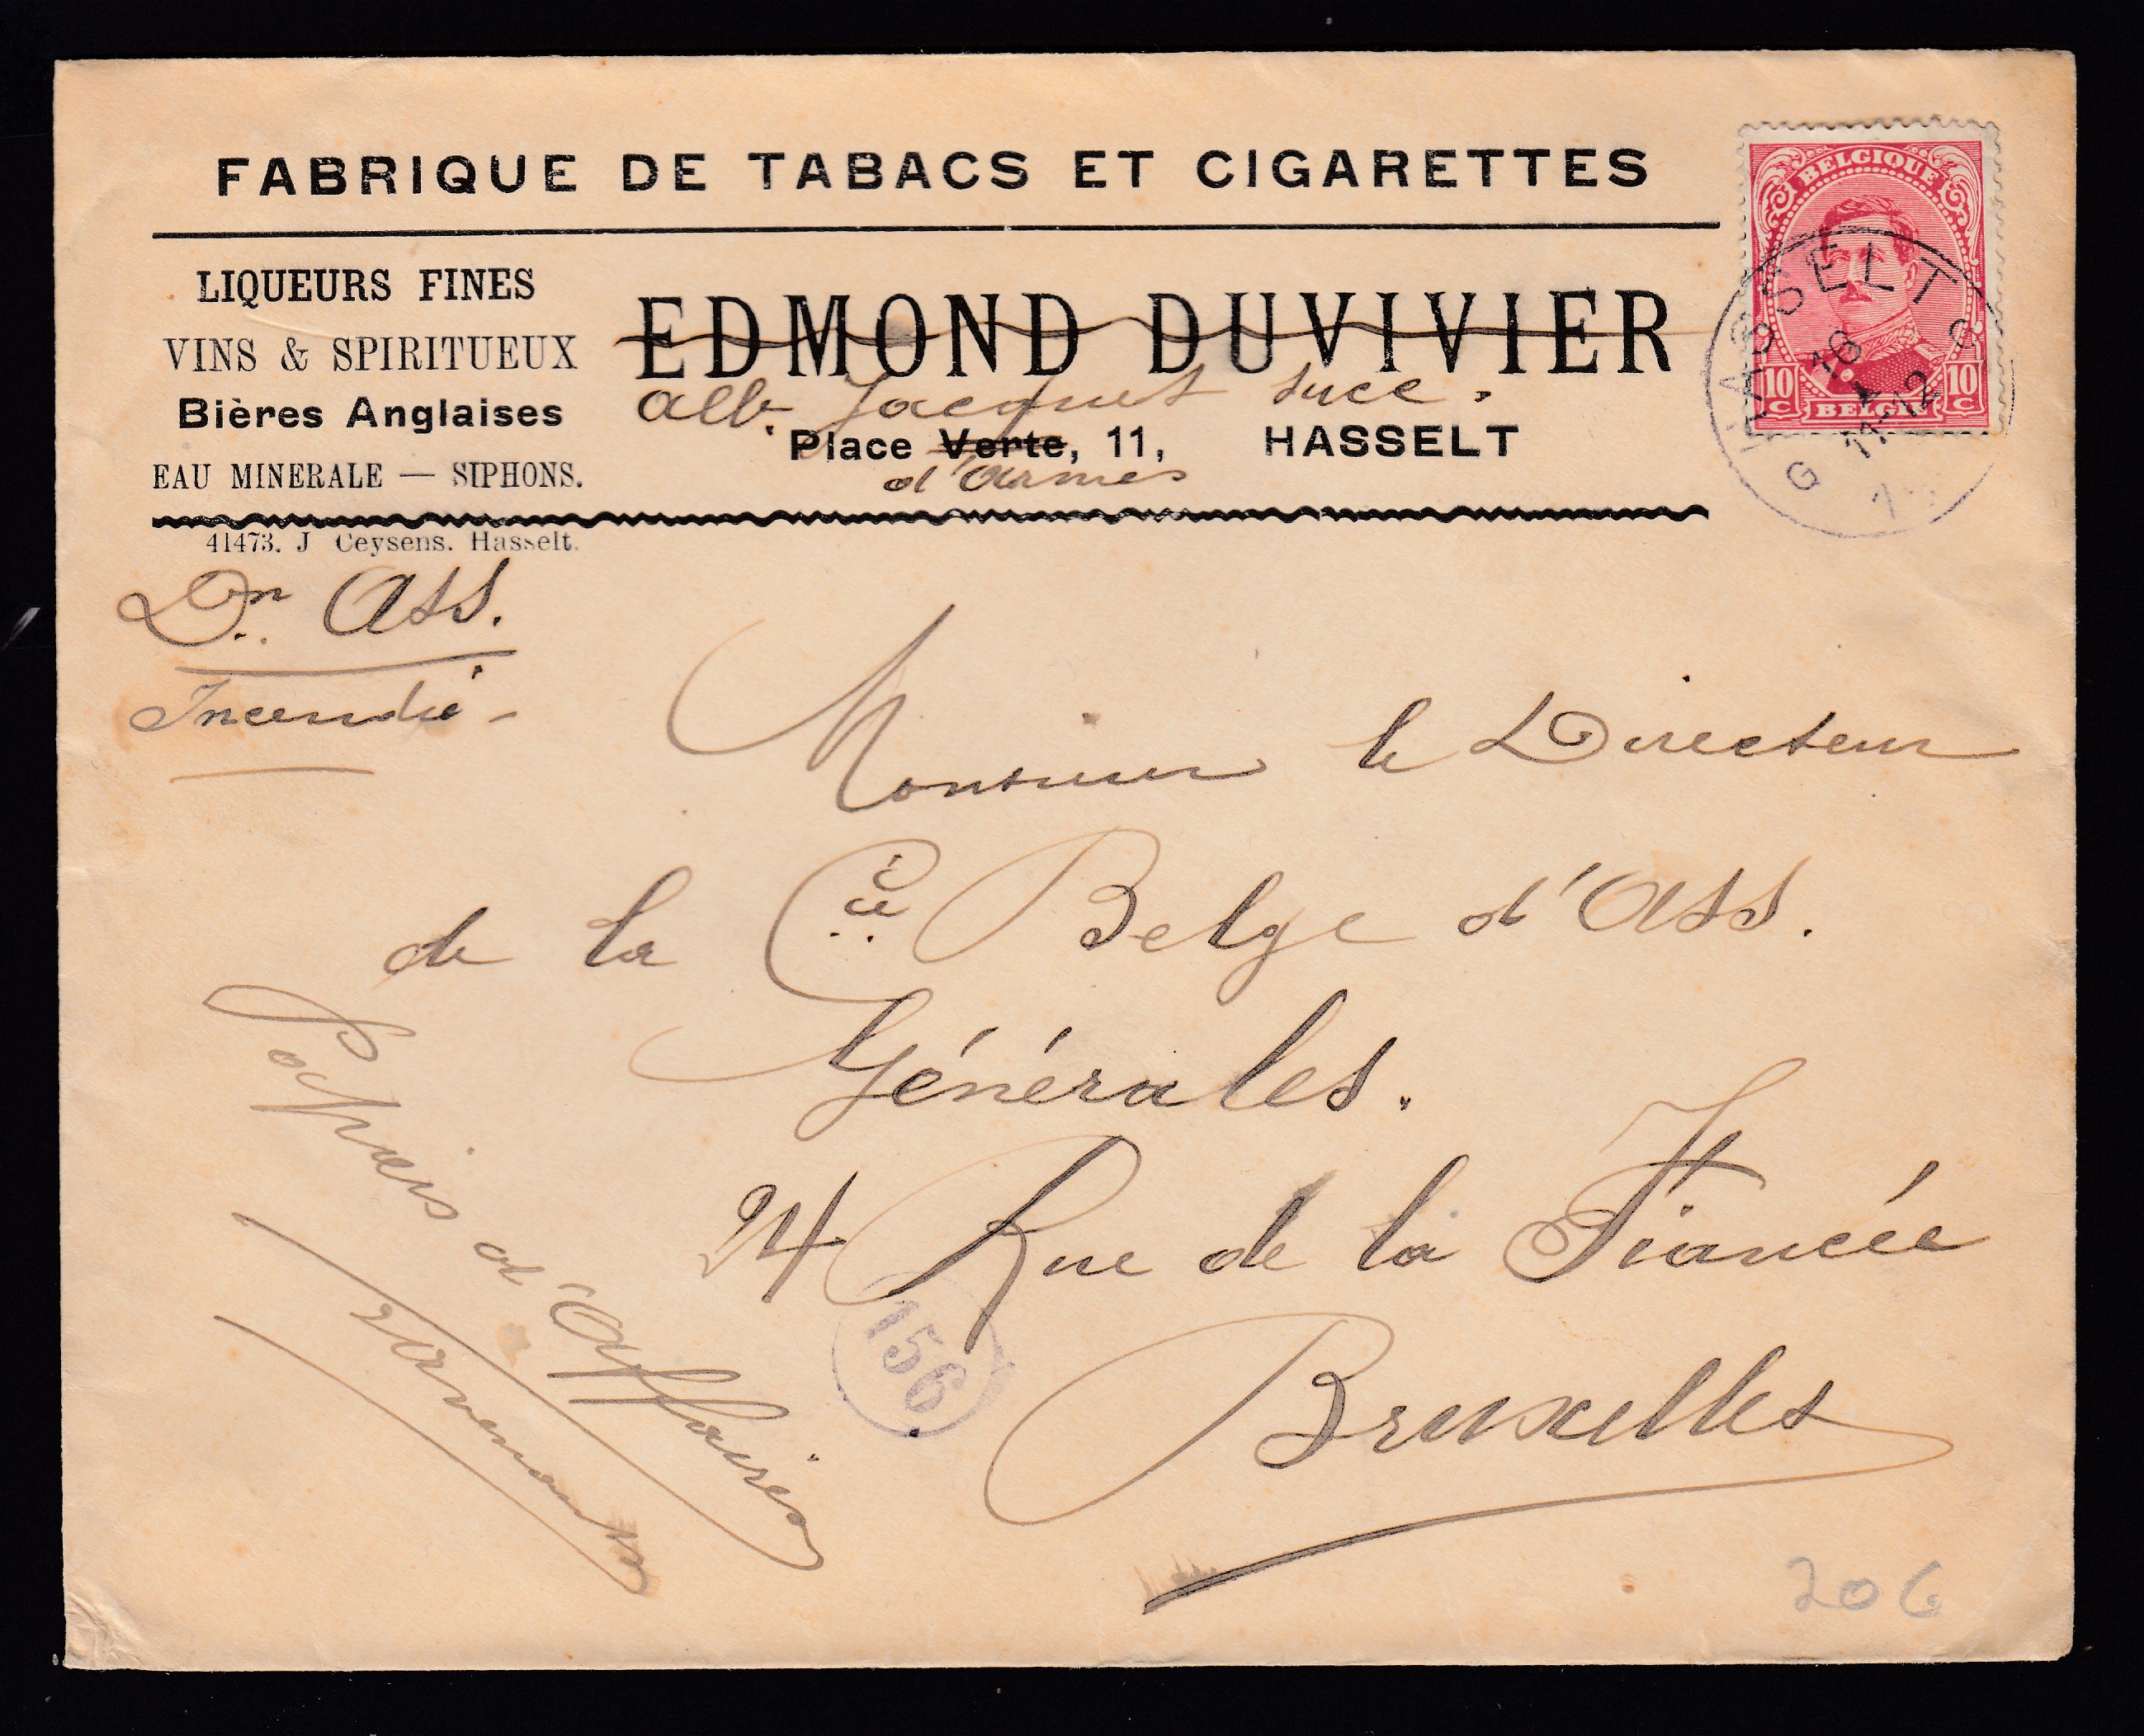 FABRIQUE DE TABACS ET CIGARETTES
LIQUEURS FINES
VINS & SPIRITUEUX
Bières Anglaises
EAU MINERALE — SIPHONS.
EDMOND DUVIVIER
Alb. Jacquet succ.
Place Verte, 11, HASSELT
d'Armes
41473. J Ceysens. Hasselt.
BELGIQUE
10 C
BELGIË
10 C
HASSELT
Dn. Ass.
Incendie
Monsieur le Directeur
de la Cie Belge d'Ass.
Générales.
24 Rue de la Fiancée
Bruxelles
Papiers d'Affaires
156
206